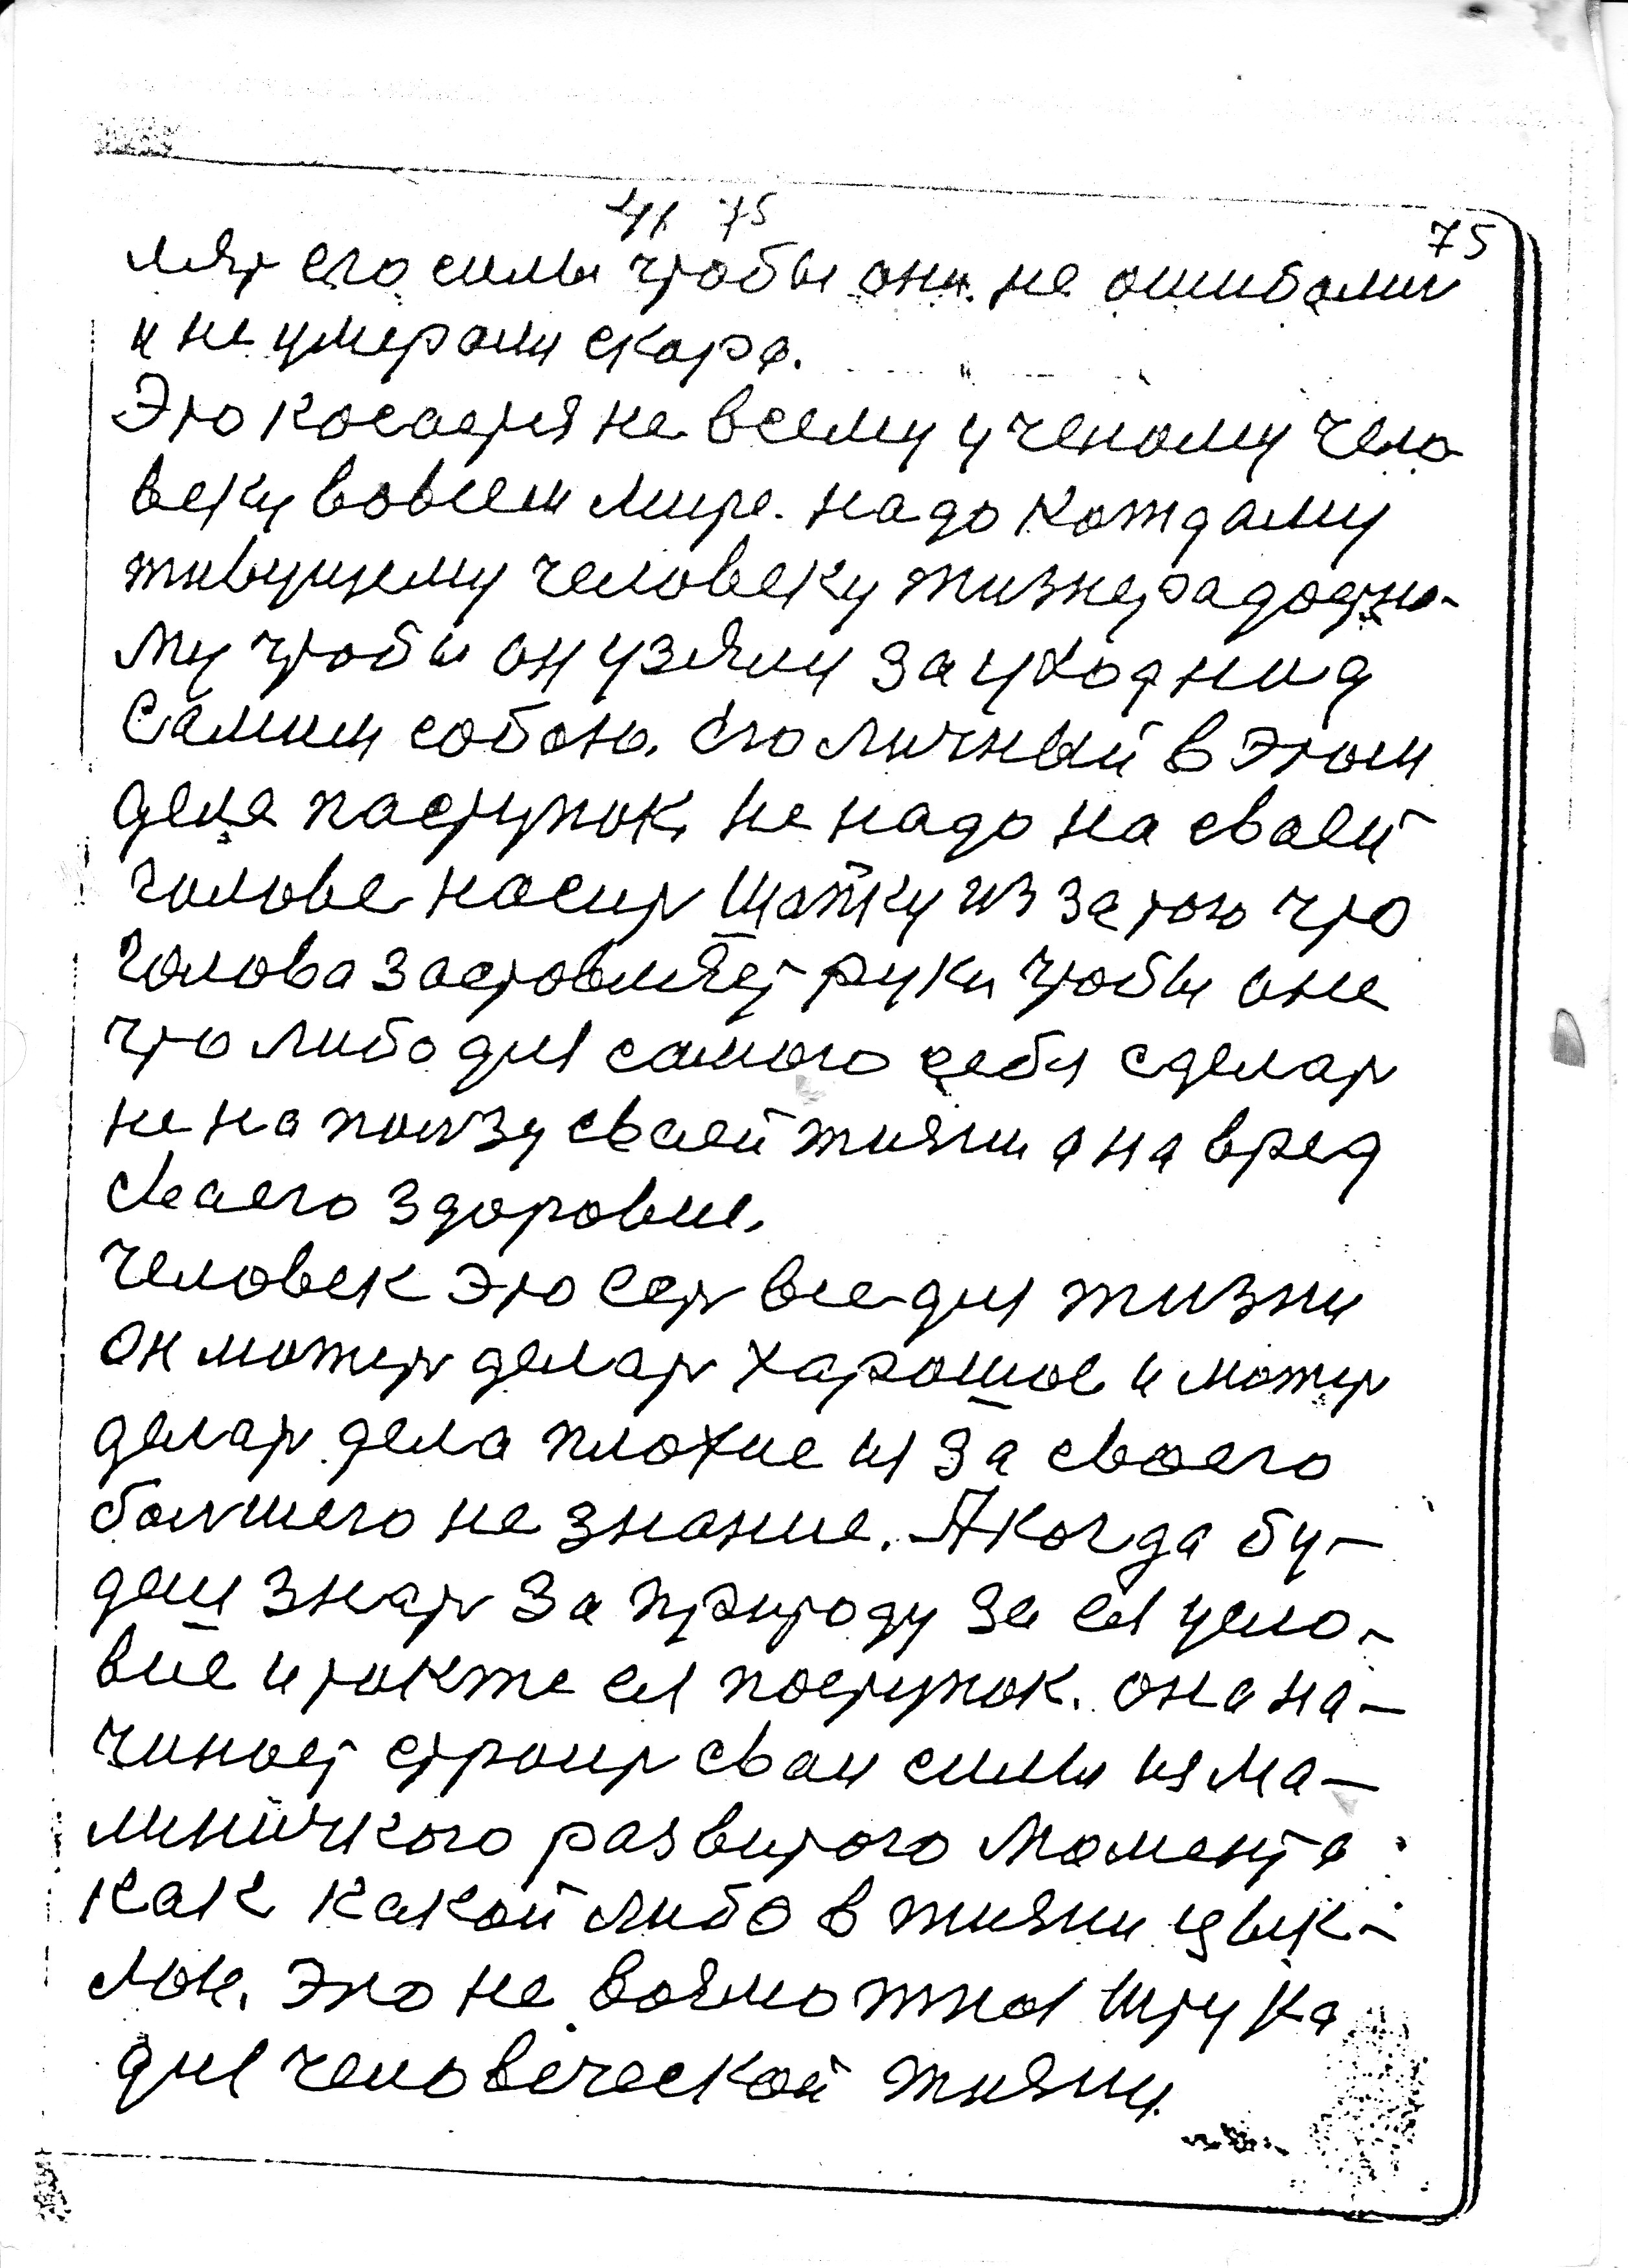 41 75
75
лят его силы чтобы они не ошибали
и не умерали скоро.
Это косается не всему ученому чело
веку вовсем мире. надо кождаму
живущему человеку жизнерадостно-
му чтобы он узяли за уход над
самим собою. Его личный в этом
деле паступок, не надо на сваей
голове насить шапку из за того что
голова заставляет руки чтобы они
что либо для самого себя сделать
не на ползу сваей жизни а на вред
сваего здоровие.
Человек это есть все для жизни
он может делать харошое и может
делать дела плохие из за своего
большего не знание. А когда бу-
деш знать за природу за ея усло-
вие и также ея поступок. она на-
чинает строить сваи силы из ма-
линичкого развитого момента
как какой либо в жизни цык-
лон. Это не возможная штука
для человеческой жизни.